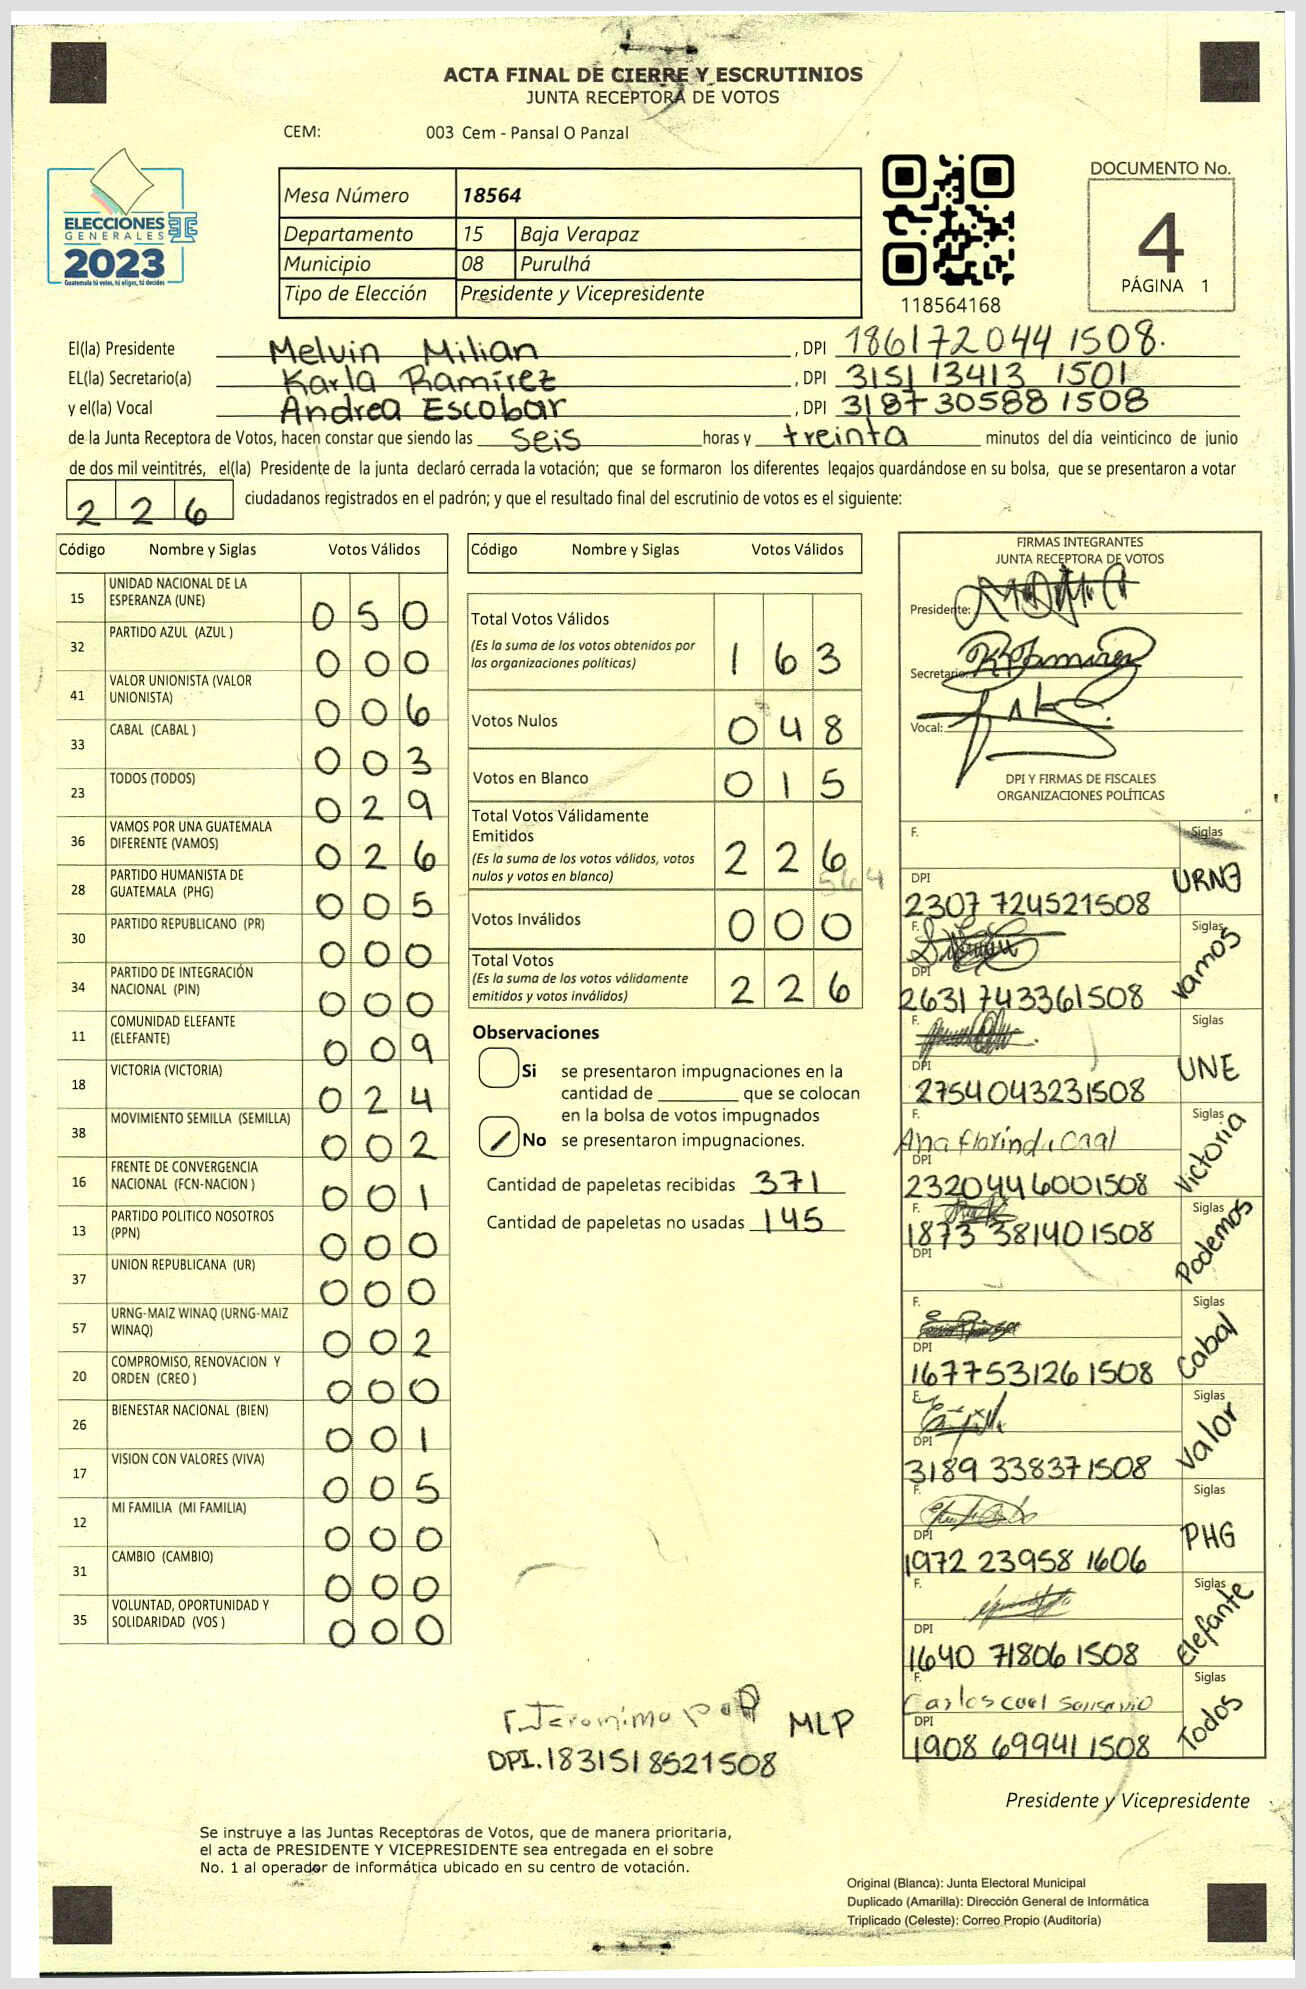 ACTA FINAL DE CIERRE Y ESCRUTINIOS
JUNTA RECEPTORA DE VOTOS
CEM: 003 Cem - Pansal O Panzal
ELECCIONES
GENERALES
2023
Guatemala tú votas, tú eliges, tú decides
TSE
Mesa Número 18564
Departamento 15 Baja Verapaz
Municipio 08 Purulhá
Tipo de Elección Presidente y Vicepresidente
118564168
DOCUMENTO No.
4
PÁGINA 1
El(la) Presidente Melvin Milian , DPI 186172044 1508.
EL(la) Secretario(a) Karla Ramírez , DPI 3151 13413 1501
y el(la) Vocal Andrea Escobar , DPI 3187 30588 1508
de la Junta Receptora de Votos, hacen constar que siendo las seis horas y treinta minutos del día veinticinco de junio
de dos mil veintitrés, el(la) Presidente de la junta declaró cerrada la votación; que se formaron los diferentes legajos guardándose en su bolsa, que se presentaron a votar
226 ciudadanos registrados en el padrón; y que el resultado final del escrutinio de votos es el siguiente:
Código Nombre y Siglas Votos Válidos
15 UNIDAD NACIONAL DE LA ESPERANZA (UNE) 050
32 PARTIDO AZUL (AZUL ) 000
41 VALOR UNIONISTA (VALOR UNIONISTA) 006
33 CABAL (CABAL ) 003
23 TODOS (TODOS) 029
36 VAMOS POR UNA GUATEMALA DIFERENTE (VAMOS) 026
28 PARTIDO HUMANISTA DE GUATEMALA (PHG) 005
30 PARTIDO REPUBLICANO (PR) 000
34 PARTIDO DE INTEGRACIÓN NACIONAL (PIN) 000
11 COMUNIDAD ELEFANTE (ELEFANTE) 009
18 VICTORIA (VICTORIA) 024
38 MOVIMIENTO SEMILLA (SEMILLA) 002
16 FRENTE DE CONVERGENCIA NACIONAL (FCN-NACION ) 001
13 PARTIDO POLITICO NOSOTROS (PPN) 000
37 UNION REPUBLICANA (UR) 000
57 URNG-MAIZ WINAQ (URNG-MAIZ WINAQ) 002
20 COMPROMISO, RENOVACION Y ORDEN (CREO ) 000
26 BIENESTAR NACIONAL (BIEN) 001
17 VISION CON VALORES (VIVA) 005
12 MI FAMILIA (MI FAMILIA) 000
31 CAMBIO (CAMBIO) 000
35 VOLUNTAD, OPORTUNIDAD Y SOLIDARIDAD (VOS ) 000
Código Nombre y Siglas Votos Válidos
Total Votos Válidos 163
(Es la suma de los votos obtenidos por
las organizaciones políticas)
Votos Nulos 048
Votos en Blanco 015
Total Votos Válidamente
Emitidos 226
(Es la suma de los votos válidos, votos
nulos y votos en blanco) 564
Votos Inválidos 000
Total Votos 226
(Es la suma de los votos válidamente
emitidos y votos inválidos)
Observaciones
Si se presentaron impugnaciones en la
cantidad de ________ que se colocan
en la bolsa de votos impugnados
No se presentaron impugnaciones.
Cantidad de papeletas recibidas 371
Cantidad de papeletas no usadas 145
FIRMAS INTEGRANTES
JUNTA RECEPTORA DE VOTOS
Presidente:
Secretario: R Ramirez
Vocal:
DPI Y FIRMAS DE FISCALES
ORGANIZACIONES POLÍTICAS
F. Siglas
DPI 2307 724521508 URNG
F. Siglas
DPI 2631 743361508 Vamos
F. Siglas
DPI 2754043231508 UNE
F. Ana Florinda Caal Siglas
DPI 2320446001508 Victoria
F. Siglas
1873 381401508 Podemos
DPI
F. Siglas
DPI 167753126 1508 Cabal
F. Siglas
DPI 3189 338371508 Valor
F. Siglas
DPI 1972 23958 1606 PHG
F. Siglas
DPI 1640 71806 1508 Elefante
F. Carlos caal Siglas
DPI 1908 69941 1508 Todos
F. Jeronimo MLP
DPI. 1831518521508
Presidente y Vicepresidente
Se instruye a las Juntas Receptoras de Votos, que de manera prioritaria,
el acta de PRESIDENTE Y VICEPRESIDENTE sea entregada en el sobre
No. 1 al operador de informática ubicado en su centro de votación.
Original (Blanca): Junta Electoral Municipal
Duplicado (Amarilla): Dirección General de Informática
Triplicado (Celeste): Correo Propio (Auditoría)